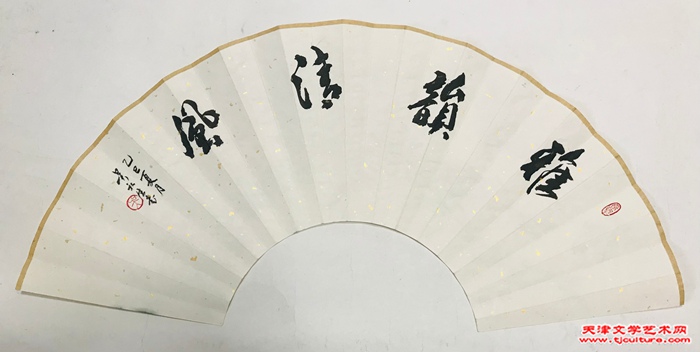 雅韵清風
乙巳夏月
天津文学艺术网
www.tjculture.com